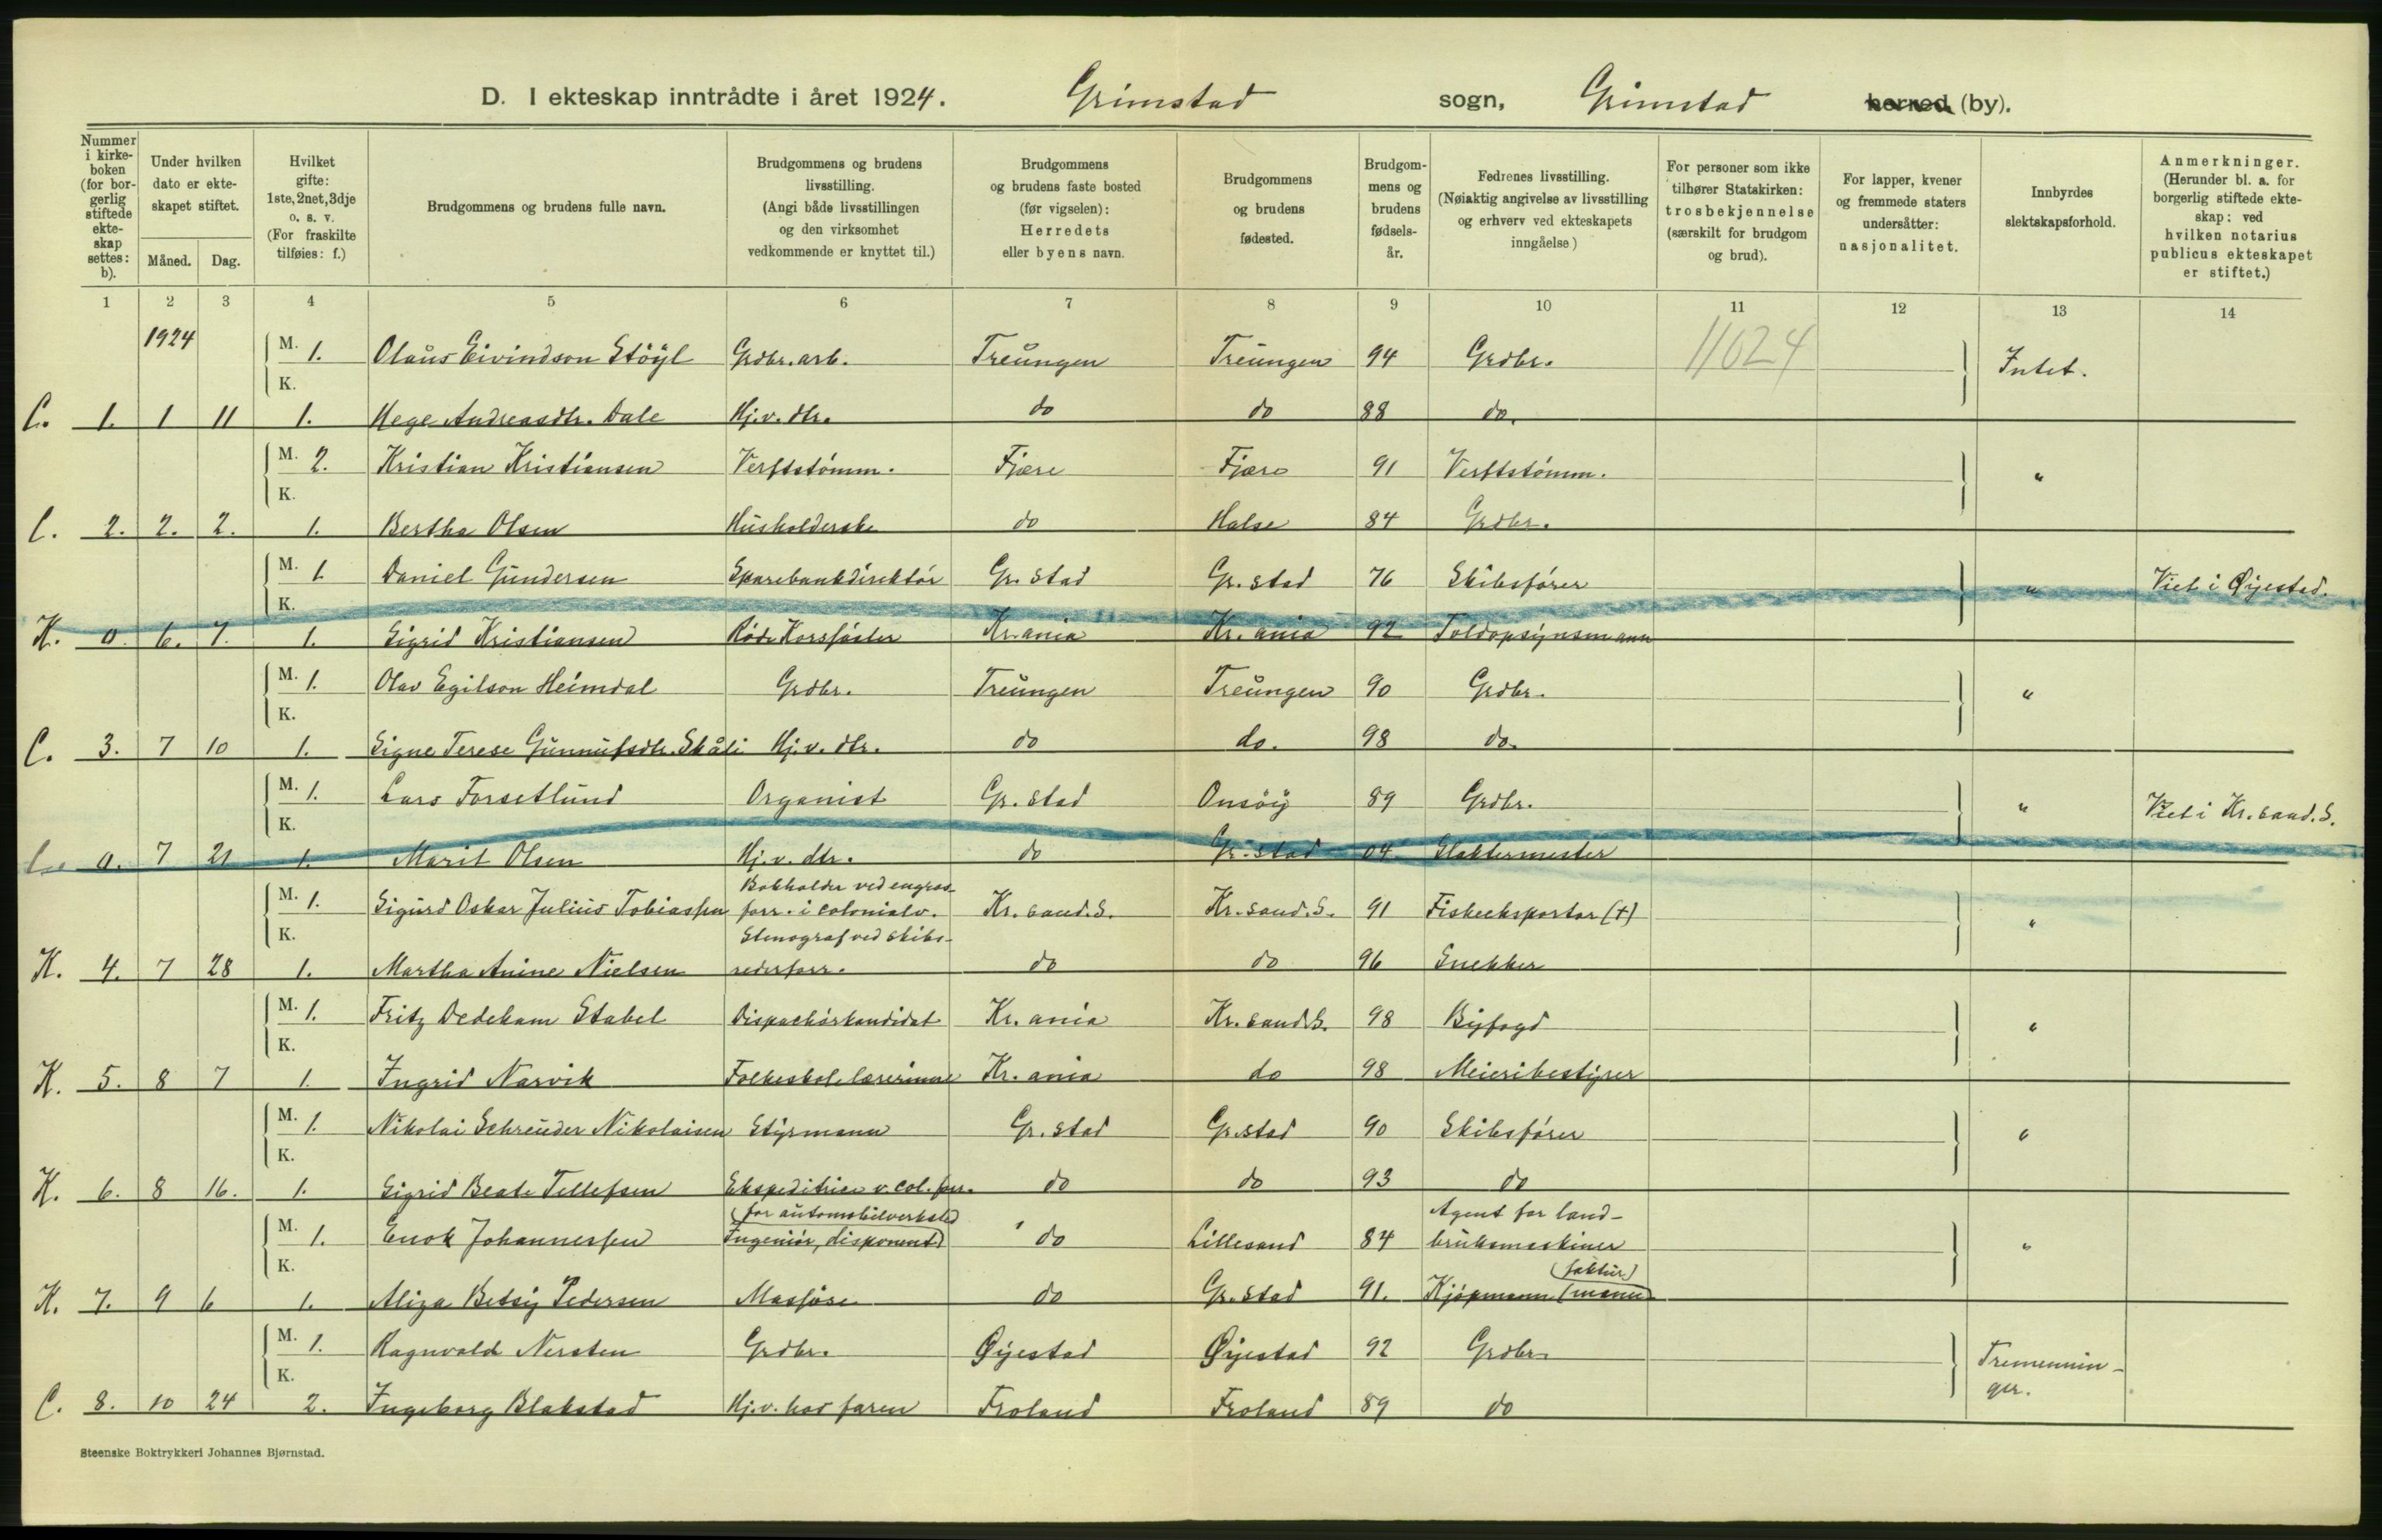 D. I ekteskap inntrådte i året 1924. Grimstad sogn, Grimstad herred (by).
Nummer i kirke-boken (for bor-gerlig stiftede ekte-skap settes: b).
Under hvilken dato er ekte-skapet stiftet.
Måned. Dag.
Hvilket gifte: 1ste, 2net, 3dje o. s. v. (For fraskilte tilføies: f.)
Brudgommens og brudens fulle navn.
Brudgommens og brudens livsstilling. (Angi både livsstillingen og den virksomhet vedkommende er knyttet til.)
Brudgommens og brudens faste bosted (før vigselen): Herredets eller byens navn.
Brudgommens og brudens fødested.
Brudgom-mens og brudens fødsels-år.
Fedrenes livsstilling. (Nøiaktig angivelse av livsstilling og erhverv ved ekteskapets inngåelse)
For personer som ikke tilhører Statskirken: trosbekjennelse (særskilt for brudgom og brud).
For lapper, kvener og fremmede staters undersåtter: nasjonalitet.
Innbyrdes slektskapsforhold.
Anmerkninger. (Herunder bl. a. for borgerlig stiftede ekte-skap: ved hvilken notarius publicus ekteskapet er stiftet.)
1 2 3 4 5 6 7 8 9 10 11 12 13 14
1924 M. 1. Olaus Eivindson Støyl Grdbr. arb. Treungen Treungen 94 Grdbr. 11024 Intet.
K.
C. 1. 1 11 1. Hege Andreasdtr. Dale Hj.v. dtr. do do 88 do.
M. 2. Kristian Kristiansen Verftstømm. Fjære Fjære 91 Verftstømm. "
K.
C. 2. 2. 2. 1. Bertha Olsen Husholderske do Halse 84 Grdbr.
M. 1 Daniel Gundersen Sparebankdirektør Gr. stad Gr. stad 76 Skibsfører " Viet i Øijestad.
K.
K. 0. 6. 7. 1. Sigrid Kristiansen Røde Korssøster Kr. ania Kr. ania 92 Toldopsynsmann
M. 1. Olav Egilson Heimdal Grdbr. Treungen Treungen 90 Grdbr. "
K.
C. 3. 7 10 1. Signe Terese Gunnufsdtr. Skåli Hj.v. dtr. do do. 98 do.
M. 1. Lars Forsetlund Organist Gr. stad Onsøy 89 Grdbr. " Viet i Kr. sand. S.
K.
C. 0. 7 21 1. Marit Olsen Hj.v. dtr. do Gr. stad 04 Slaktermester
M. 1. Sigurd Oskar Julius Tobiassen Bokholder ved engros-forr. i colonialv. Kr. sand. S. Kr. sand. S. 91 Fiskeeksportør (+) "
K.
K. 4. 7 28 1. Martha Anine Nielsen Stenograf ved skibs-rederforr. do do 96 Snekker
M. 1. Fritz Dedekam Stabel Dispachørkandidat Kr. ania Kr. sand. S. 98 Byfogd "
K.
K. 5. 8 7 1. Ingrid Narvik Folkeskolelærerinne Kr. ania do 98 Meieribestyrer
M. 1. Nikolai Schreuder Nikolaisen Styrmann Gr. stad Gr. stad 90 Skibsfører "
K.
K. 6. 8 16. 1. Sigrid Beate Tellefsen Ekspeditrise v. col. forr. do do 93 do
M. 1. Enok Johannessen Ingeniør, disponent (for automobilverksted) do Lillesand 84 Agent for land-bruksmaskiner "
K.
K. 7. 9 6 1. Aliza Betsy Pedersen Massøse do Gr. stad 91. Kjøpmann (manufaktur)
M. 1. Ragnvald Nersten Grdbr. Øijestad Øijestad 92 Grdbr. Tremennin-ger.
K.
C. 8. 10 24 2. Ingeborg Blakstad Hj.v. hos faren Froland Froland 89 do
Steenske Boktrykkeri Johannes Bjørnstad.